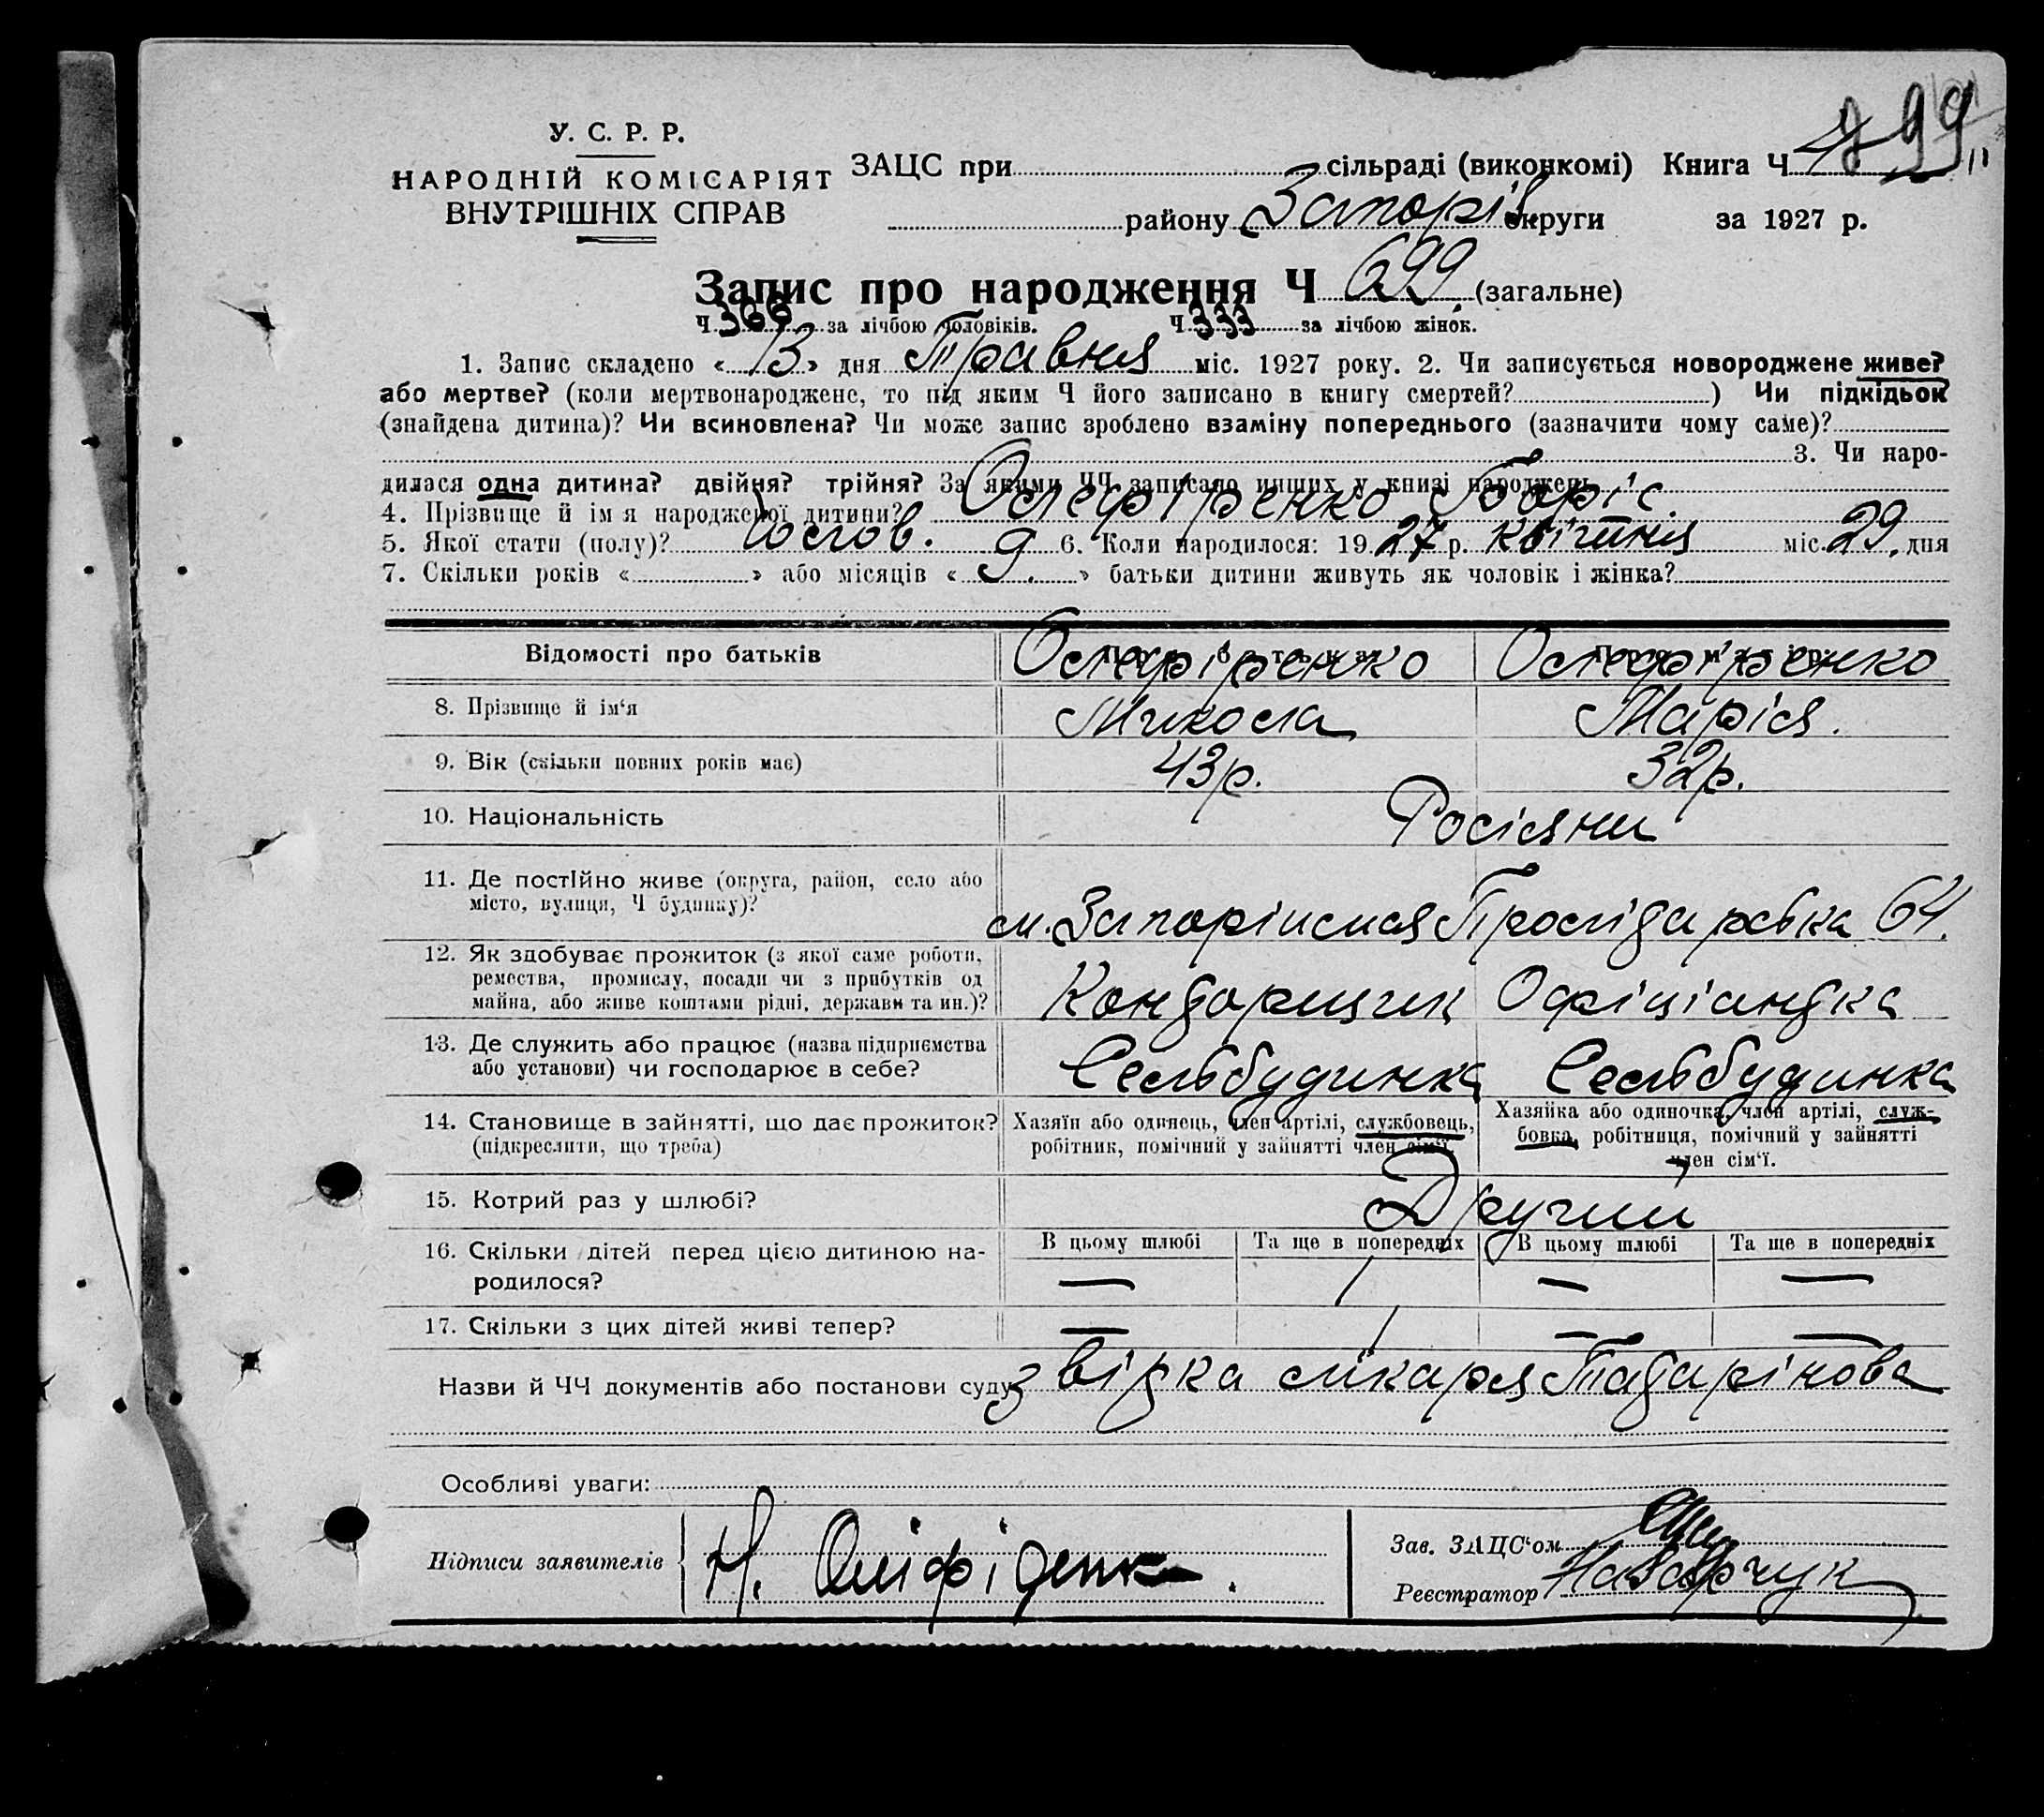 У. С. Р. Р.
НАРОДНІЙ КОМІСАРІЯТ
ВНУТРІШНІХ СПРАВ
ЗАЦС при сільраді (виконкомі) Книга Ч 99
району Запоріз. округи за 1927 р.
Запис про народження Ч 699 (загальне)
Ч 366 за лічбою чоловіків. Ч 333 за лічбою жінок.
1. Запис складено « 13 » дня Травня міс. 1927 року. 2. Чи записується новороджене живе?
або мертве? (коли мертвонароджене, то під яким Ч його записано в книгу смертей? ) Чи підкідьок
(знайдена дитина)? Чи всиновлена? Чи може запис зроблено взаміну попереднього (зазначити чому саме)?
3. Чи наро-
дилася одна дитина? двійня? трійня? За якими ЧЧ записано инших у книзі народжень
4. Прізвище й ім я народженої дитини? Олефіренко Боріс.
5. Якої стати (полу)? Чолов. 6. Коли народилося: 19 27 р. квітня міс. 29. дня
7. Скільки років « » або місяців « 9. » батьки дитини живуть як чоловік і жінка?
Відомості про батьків Олефіренко Олефіренко
8. Прізвище й ім‘я Микола Марія.
9. Вік (скільки повних років має) 43р. 32р.
10. Національність Росіяни
11. Де постійно живе (округа, район, село або
місто, вулиця, Ч будинку)? м. Запоріжжя 64.
12. Як здобуває прожиток (з якої саме роботи,
ремества, промислу, посади чи з прибутків од
майна, або живе коштами рідні, держави та ин.)? Кондорщик Офіціандка
13. Де служить або працює (назва підприємства
або установи) чи господарює в себе? Сельбудинка Сельбудинка
14. Становище в зайнятті, що дає прожиток?
(підкреслити, що треба)
Хазяїн або одинець, член артілі, службовець,
робітник, помічний у зайнятті член сім‘ї.
Хазяйка або одиночка, член артілі, служ-
бовка, робітниця, помічний у зайнятті
член сім‘ї.
15. Котрий раз у шлюбі? Другий
16. Скільки дітей перед цією дитиною на-
родилося?
В цьому шлюбі Та ще в попередніх В цьому шлюбі Та ще в попередніх
— 1 — —
17. Скільки з цих дітей живі тепер? — 1 — —
Назви й ЧЧ документів або постанови суду звідка лікаря
Особливі уваги:
Підписи заявителів Н.
Зав. ЗАЦС‘ом
Реєстратор Назарчук